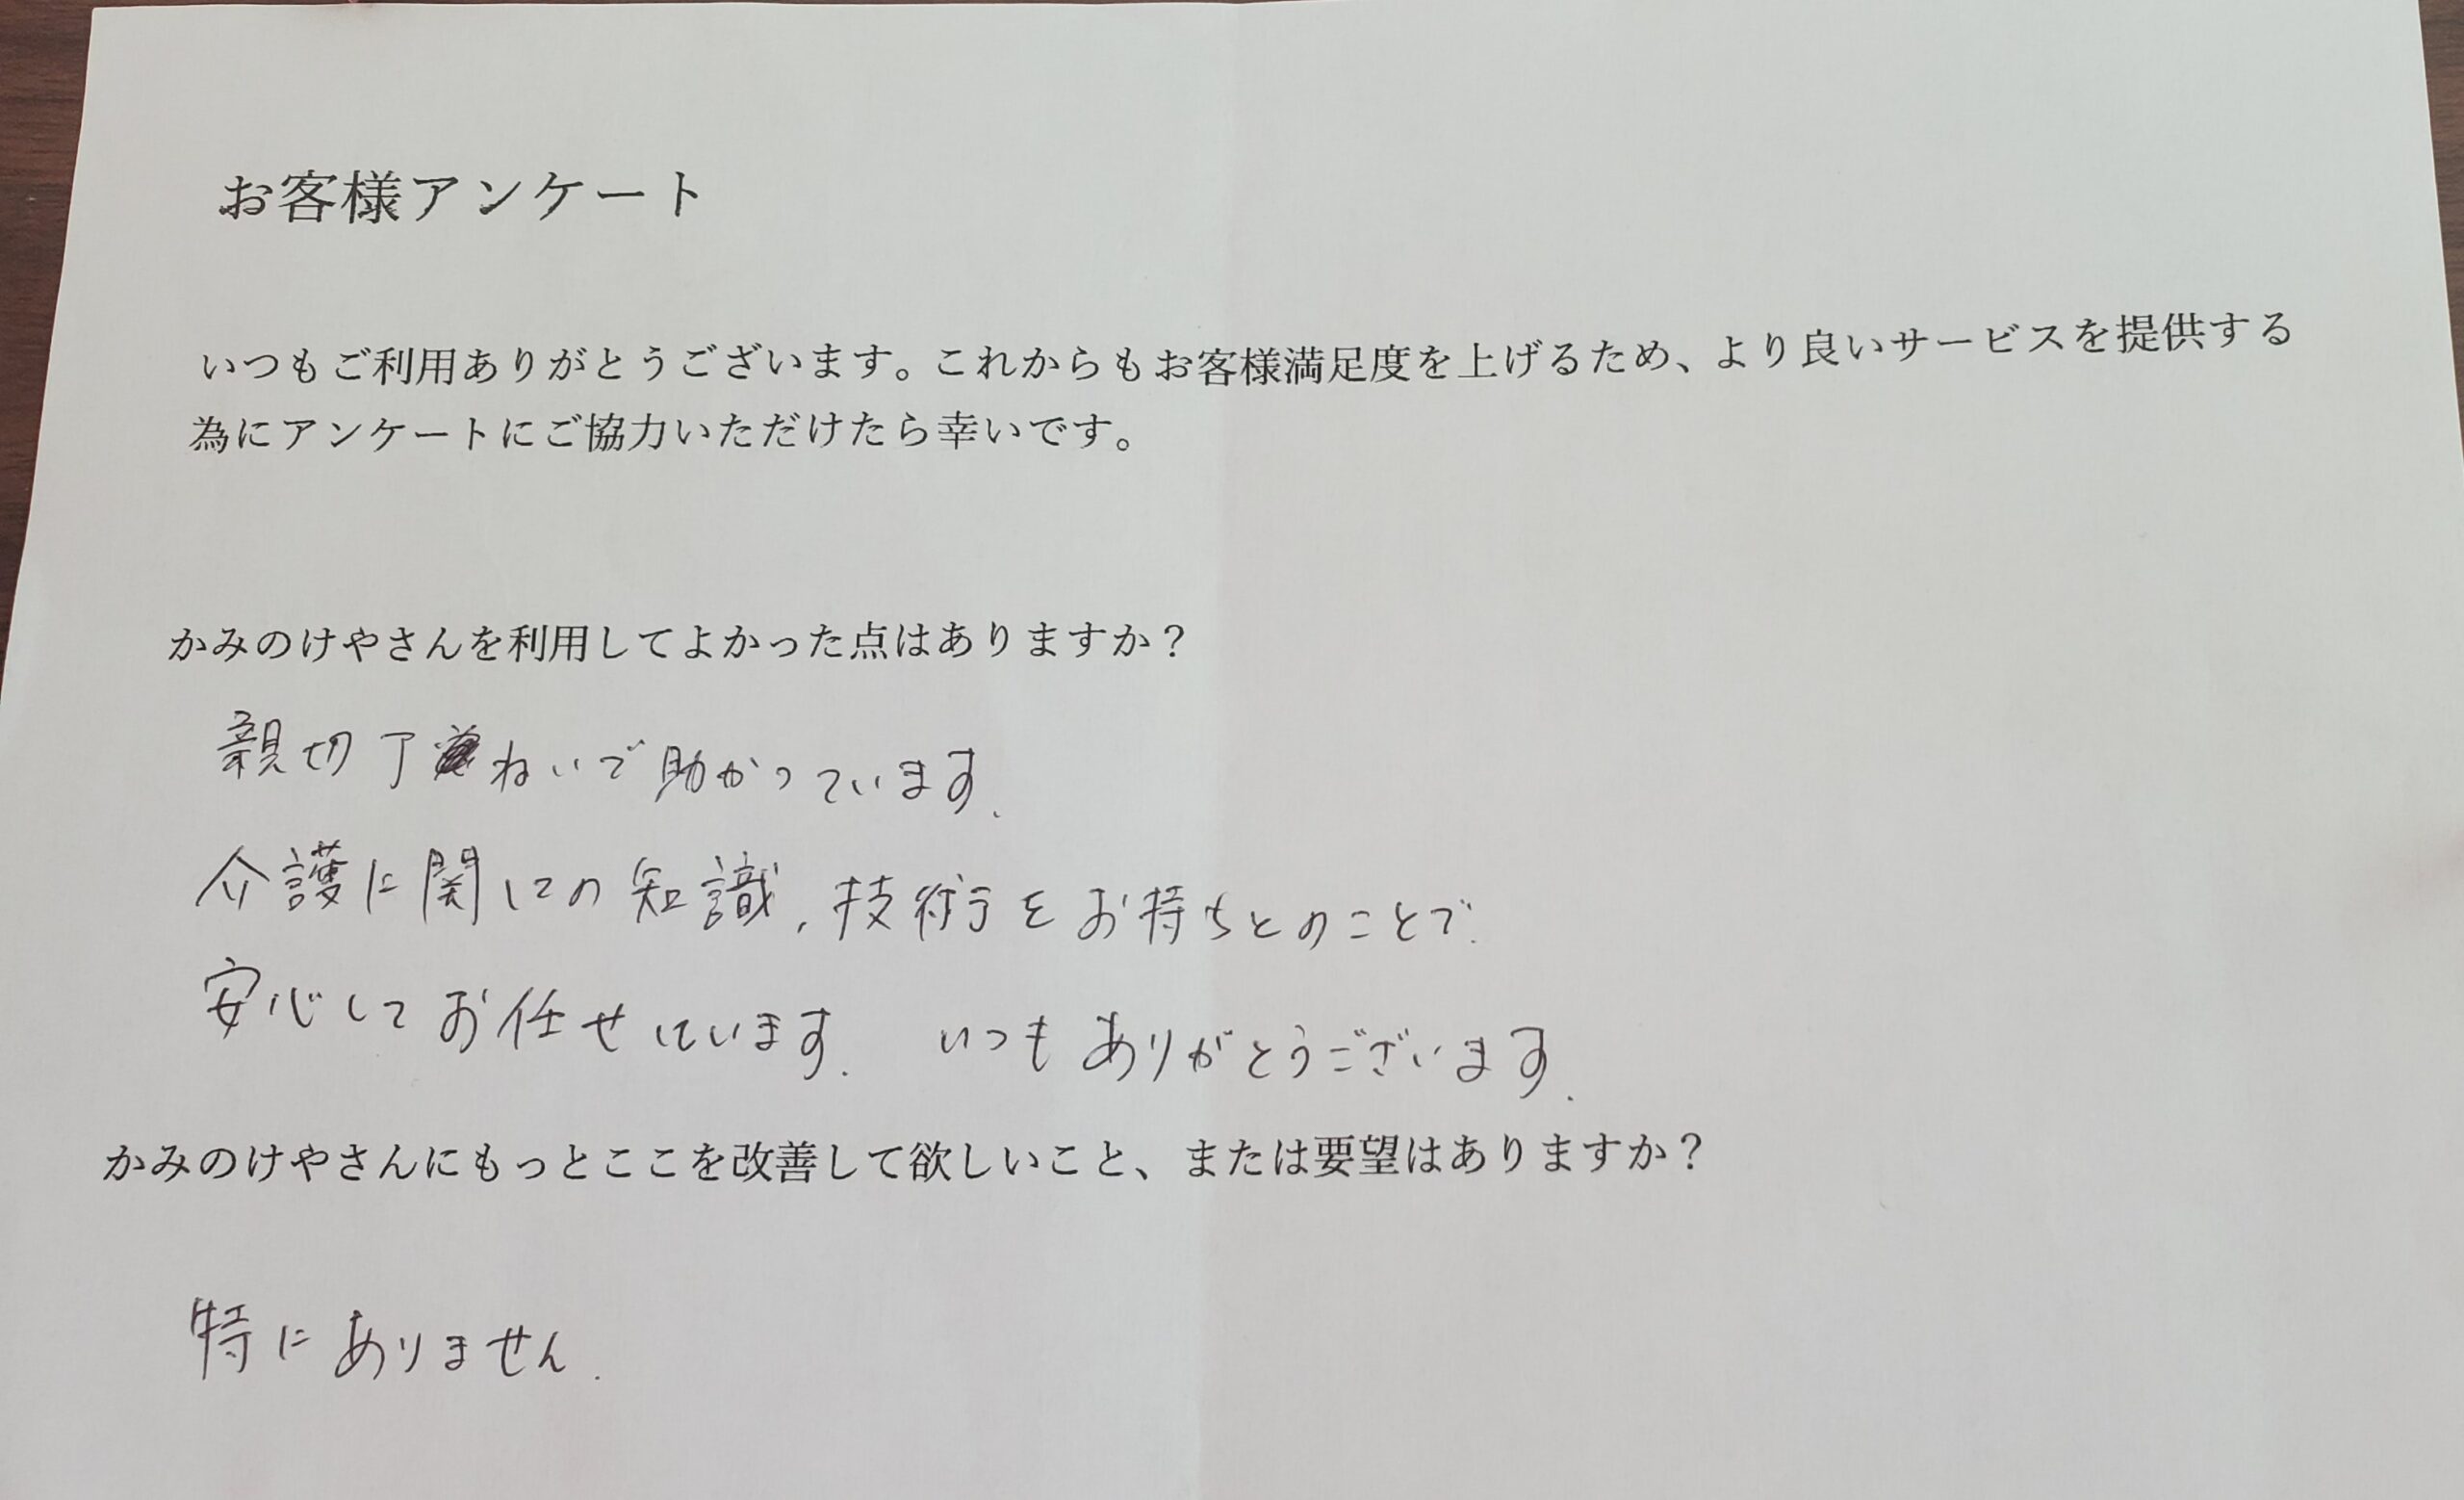 お客様アンケート
いつもご利用ありがとうございます。これからもお客様満足度を上げるため、より良いサービスを提供する
為にアンケートにご協力いただけたら幸いです。
かみのけやさんを利用してよかった点はありますか？
親切丁ねいで助かっています.
介護に関しての知識,技術をお持ちとのことで.
安心してお任せしています. いつもありがとうございます.
かみのけやさんにもっとここを改善して欲しいこと、または要望はありますか？
特にありません.